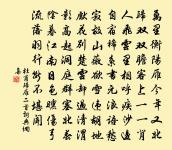 萬里衡陽雁今年又北
歸雙雙瞻客上一一背
人飛雲里相呼疾沙邊
自宿稀系書元浪語愁
寂故山薇欲雪違胡地
先花別楚雲卻過清渭
影高起洞庭群塞北春
陰暮江南日色曛傷弓
流落羽行斷不堪聞
杜甫歸雁二首